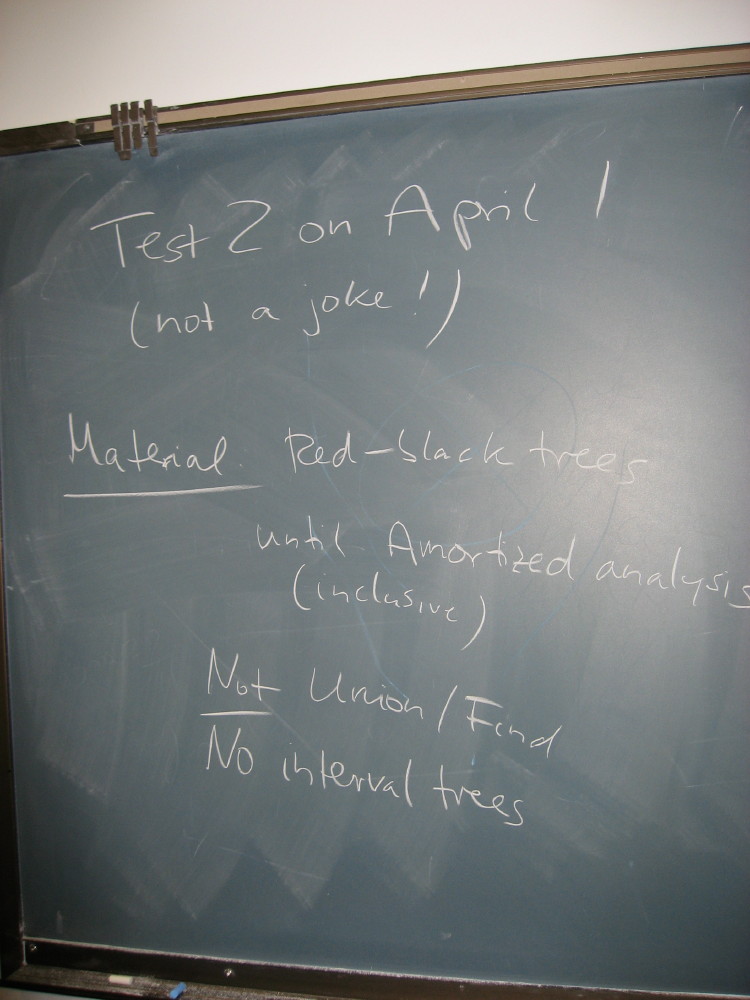 Test 2 on April 1
(not a joke!)
Material. Red-black trees
until Amortized analysis
(inclusive)
Not Union/Find
No interval trees